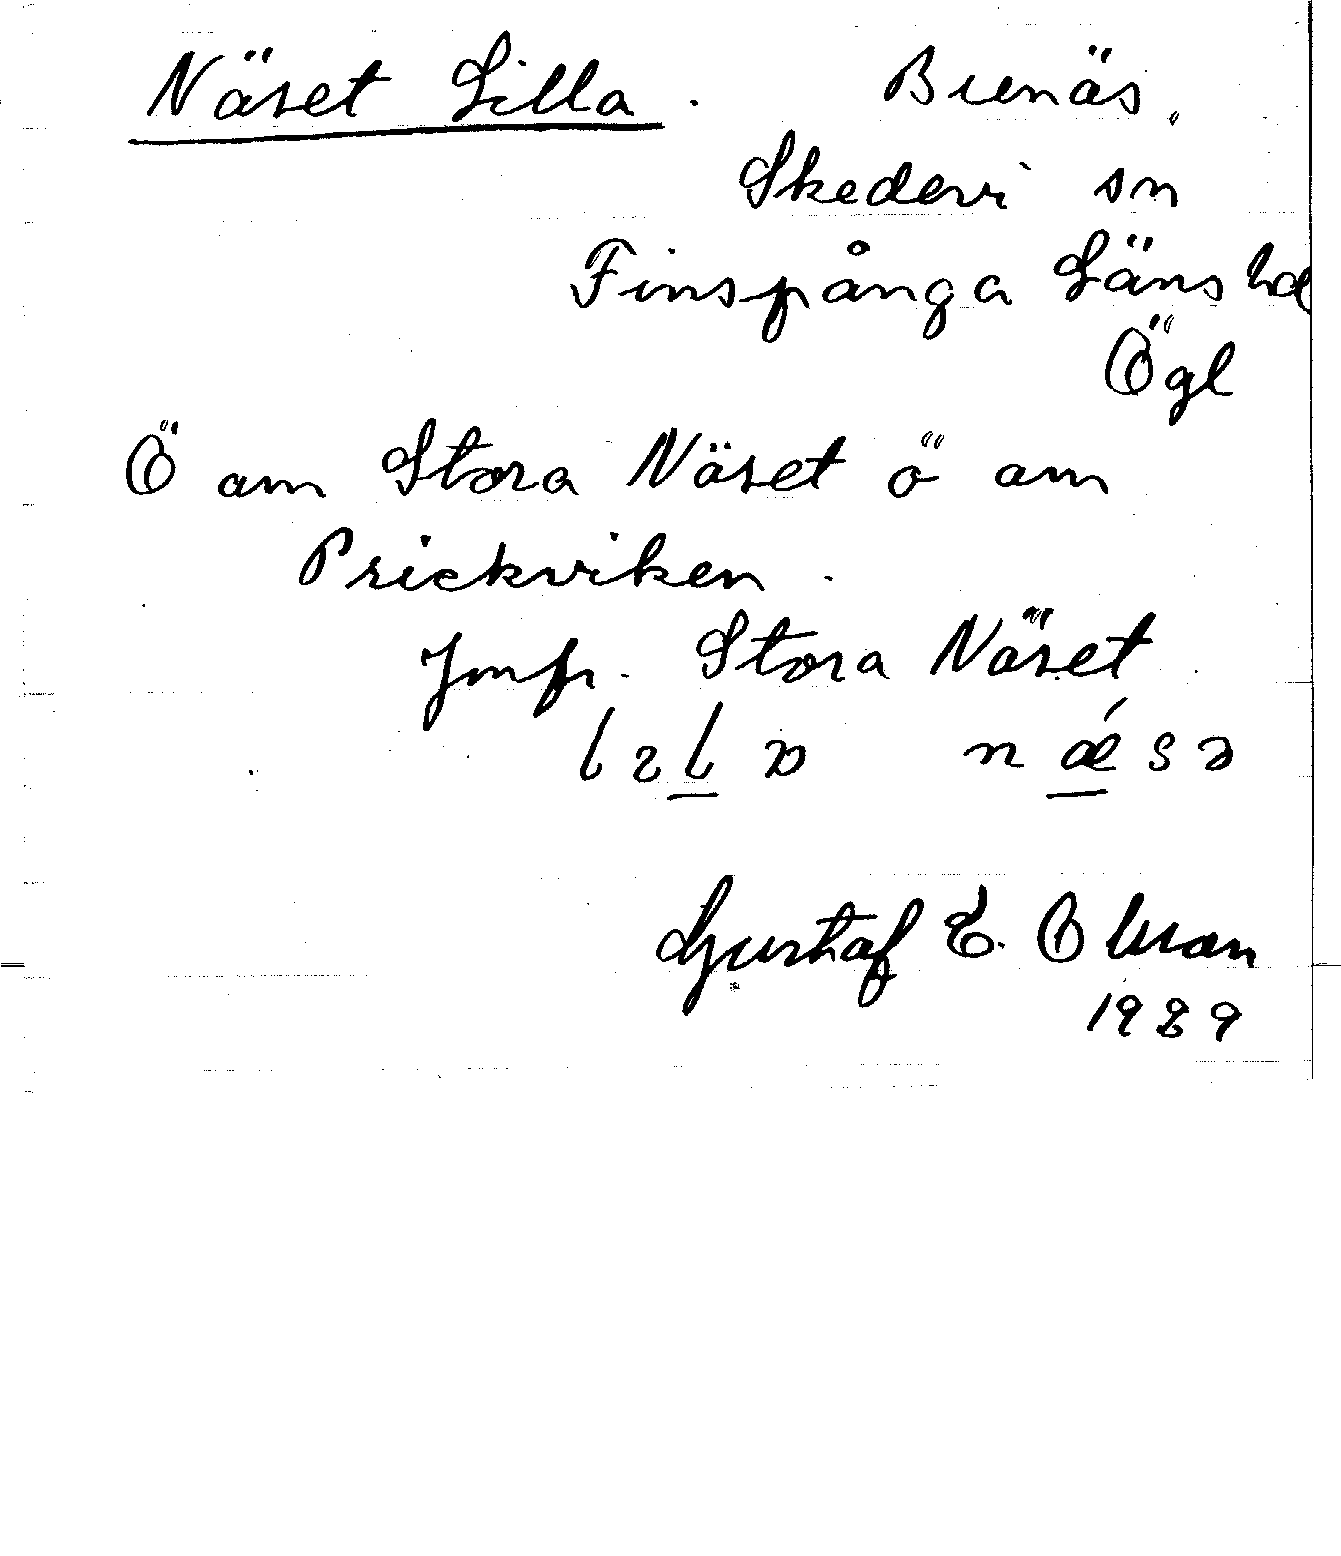 Näset Lilla. Bienäs,
Skedevi sn
Finspånga Läns hd
Ögl
Ö om Stora Näset ö om
Prickviken.
Jmfr. Stora Näset
Gustaf E. Olsson
1989